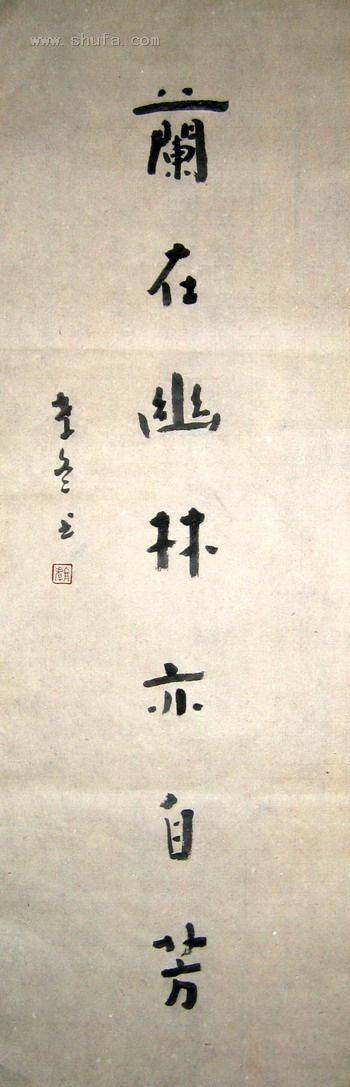 www.shufa.com
蘭在幽林亦自芳